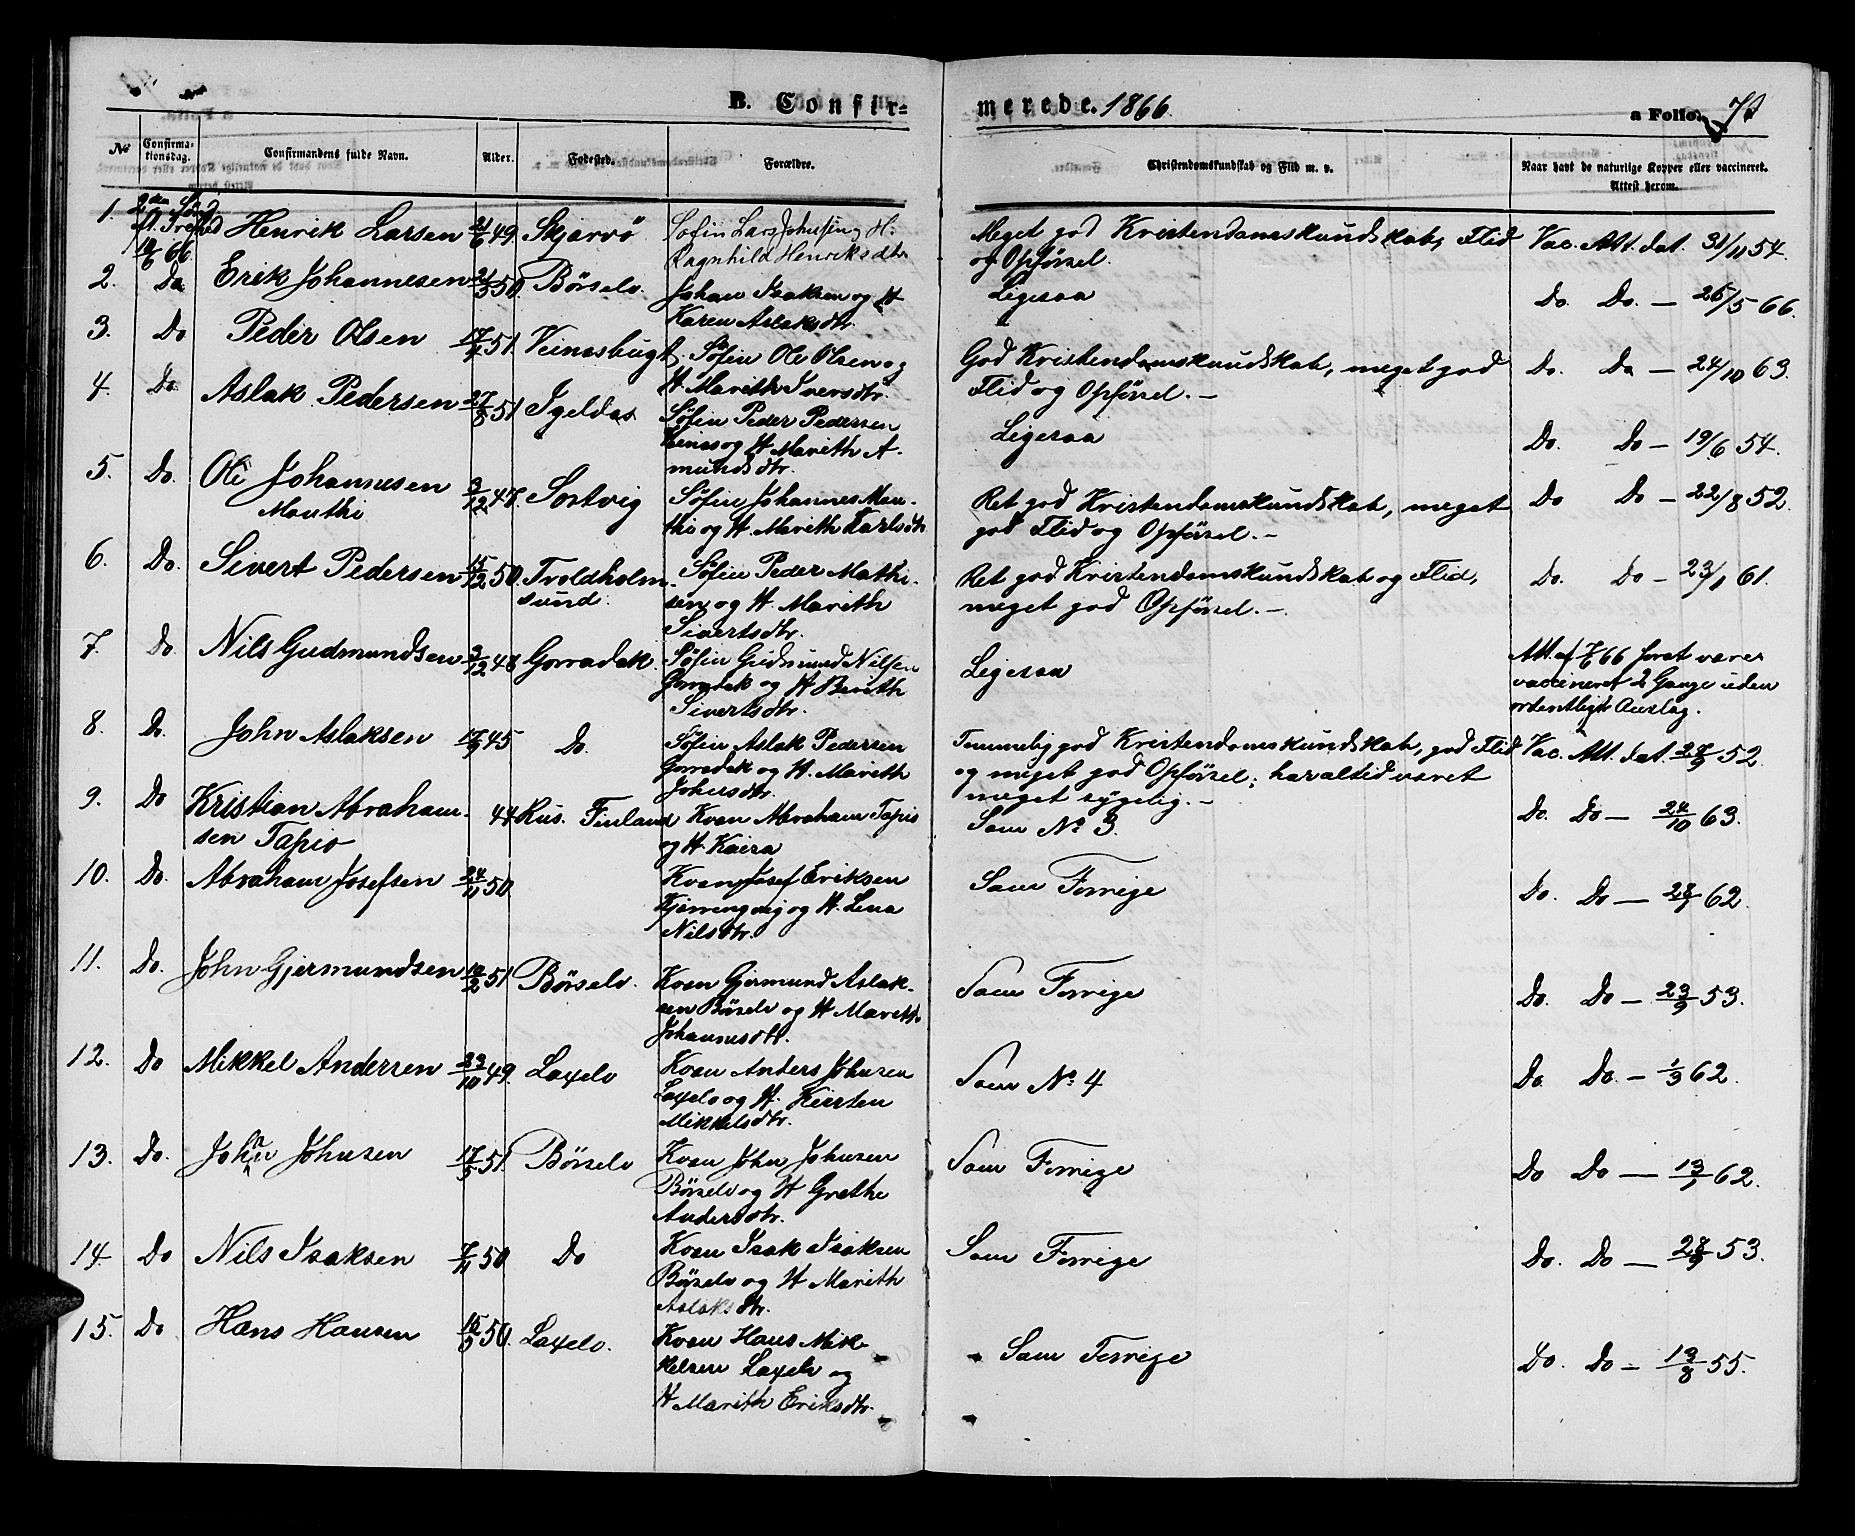 B. Confir=
merede. 1866.
a Folio. 71
No
Confirma-
tionsdag.
Confirmandens fulde Navn.
Alder.
Fødested.
Forældre.
Christendomskundskab og Flid m. v.
Naar havt de naturlige Kopper eller vaccineret.
Attest herom.
1. 2den Sønd eft. Trefold 10/6 66 Henrik Larsen 21/6 49. Skjærvø
Søfin Lars Johnsen og H.
Ragnhild Henriksdtr
Meget god Kristendomskundskab, Flid
og Opførsel.
Vac. Att. dat. 31/11 54.
2. Do Erik Johannesen 21/3 50. Børselv.
Johan Isaksen og H
Karen Aslaksdtr.
Ligesaa
Do. Do. — 26/5 66.
3. Do Peder Olsen 17/4 51. Veinesbugt.
Søfin Ole Olsen og
H. Marith Iversdtr.
God Kristendomskundskab, meget god
Flid og Opførsel. —
Do. Do — 24/10 63.
4. Do. Aslak Pedersen 27/8 51 Igeldas
Søfin Peder Pedersen
Veines og H Marith A-
mundsdtr.
Ligesaa
Do Do — 19/6 54.
5. Do. Ole Johannesen
Manthi
3/12 47. Sortvig
Søfin Johannes Man-
thi og H. Mareth Karlsdtr
Ret god Kristendomskundskab, meget
god Flid og Opførsel. —
Do Do — 22/8 52.
6. Do. Sivert Pedersen 15/12 50. Troldholm-
sund.
Søfin Peder Mathi-
sen og H. Marith
Sivertsdtr.
Ret god Kristendomskundskab og Flid,
meget god Opførsel. —
Do. Do — 23/1 61.
7. Do. Nils Gudmundsen 3/12 48 Gorradak.
Søfin Gudmund Nilsen
Gorradak og H Berith
Sivertsdtr.
Ligesaa
Att. af 7/6 66 for at være
vaccineret 2 Gange uden
ordentligt Anslag.
8. Do. John Aslaksen 17/9 45 Do.
Søfin Aslak Pedersen
Gorradak og H. Marith
Johnsdtr.
Temmelig god Kristendomskundskab, god Flid
og meget god Opførsel; har altid været
meget sygelig. —
Vac. Att. dat. 28/9 52
9. Do Kristian Abraham-
sen Tapio
44 Rus. Finland
Kvæn Abraham Tapio
og H Kaisa
Som No 3.
Do. Do — 24/10 63.
10. Do. Abraham Josefsen 24/11 50.
Kvæn Josef Eriksen
Kjærringvig og H. Lena
Nilsdtr.
Som Forrige
Do. Do — 28/9 62.
11. Do. John Gjermundsen 10/2 51 Børselv.
Kvæn Gjermund Aslak-
sen Børselv og H Mareth
Johannesdtr.
Som Forrige
Do. Do — 23/9 53.
12. Do Mikkel Andersen 23/10 49. Laxelv
Kvæn Anders Johnsen
Laxelv og H. Kirsten
Mikkelsdtr.
Som No 4
Do Do. — 1/3 62.
13. Do. John Johnsen 17/5 51. Børselv
Kvæn John Johnsen
Børselv og H Grethe
Andersdtr.
Som Forrige
Do Do — 13/9 62.
14. Do Nils Isaksen 7/11 50 Do
Kvæn Isak Isaksen
Børselv og H Marith
Aslaksdtr.
Som Forrige
Do. Do — 28/9 53.
15. Do Hans Hansen 15/5 50. Laxelv.
Kvæn Hans Mik-
kelsen Laxelv og
H Marith Eriksdtr.
Som Forrige
Do. Do — 13/8 55.